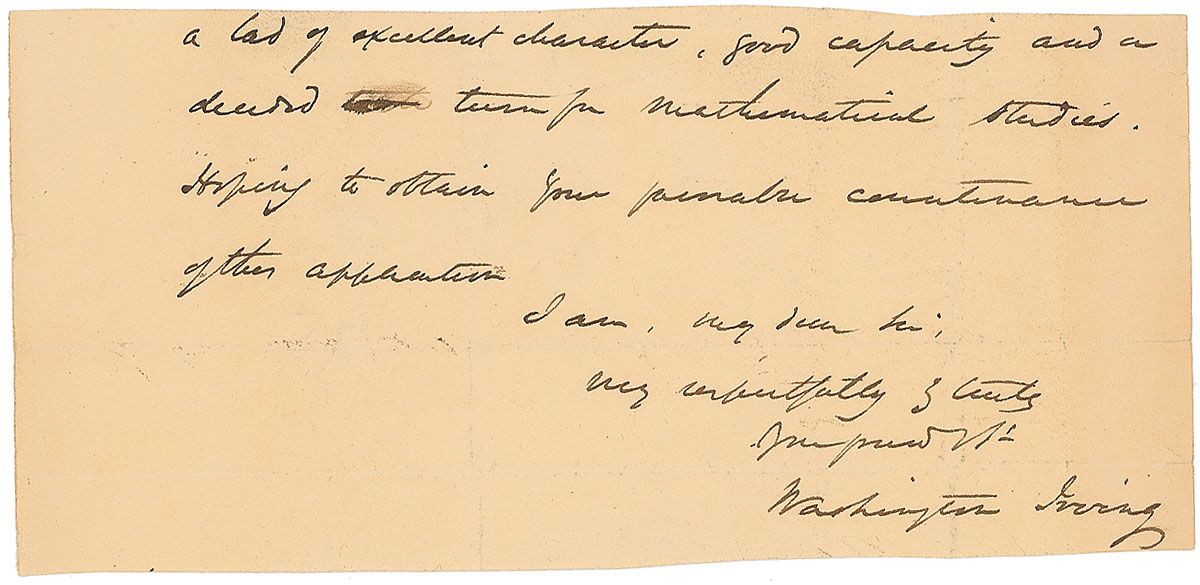 a lad of excellent character, good capacity and a
decided turn for mathematical studies.
Hoping to obtain your favorable countenance
of this application
I am, my dear Sir,
very respectfully & truly
Your friend &c
Washington Irving